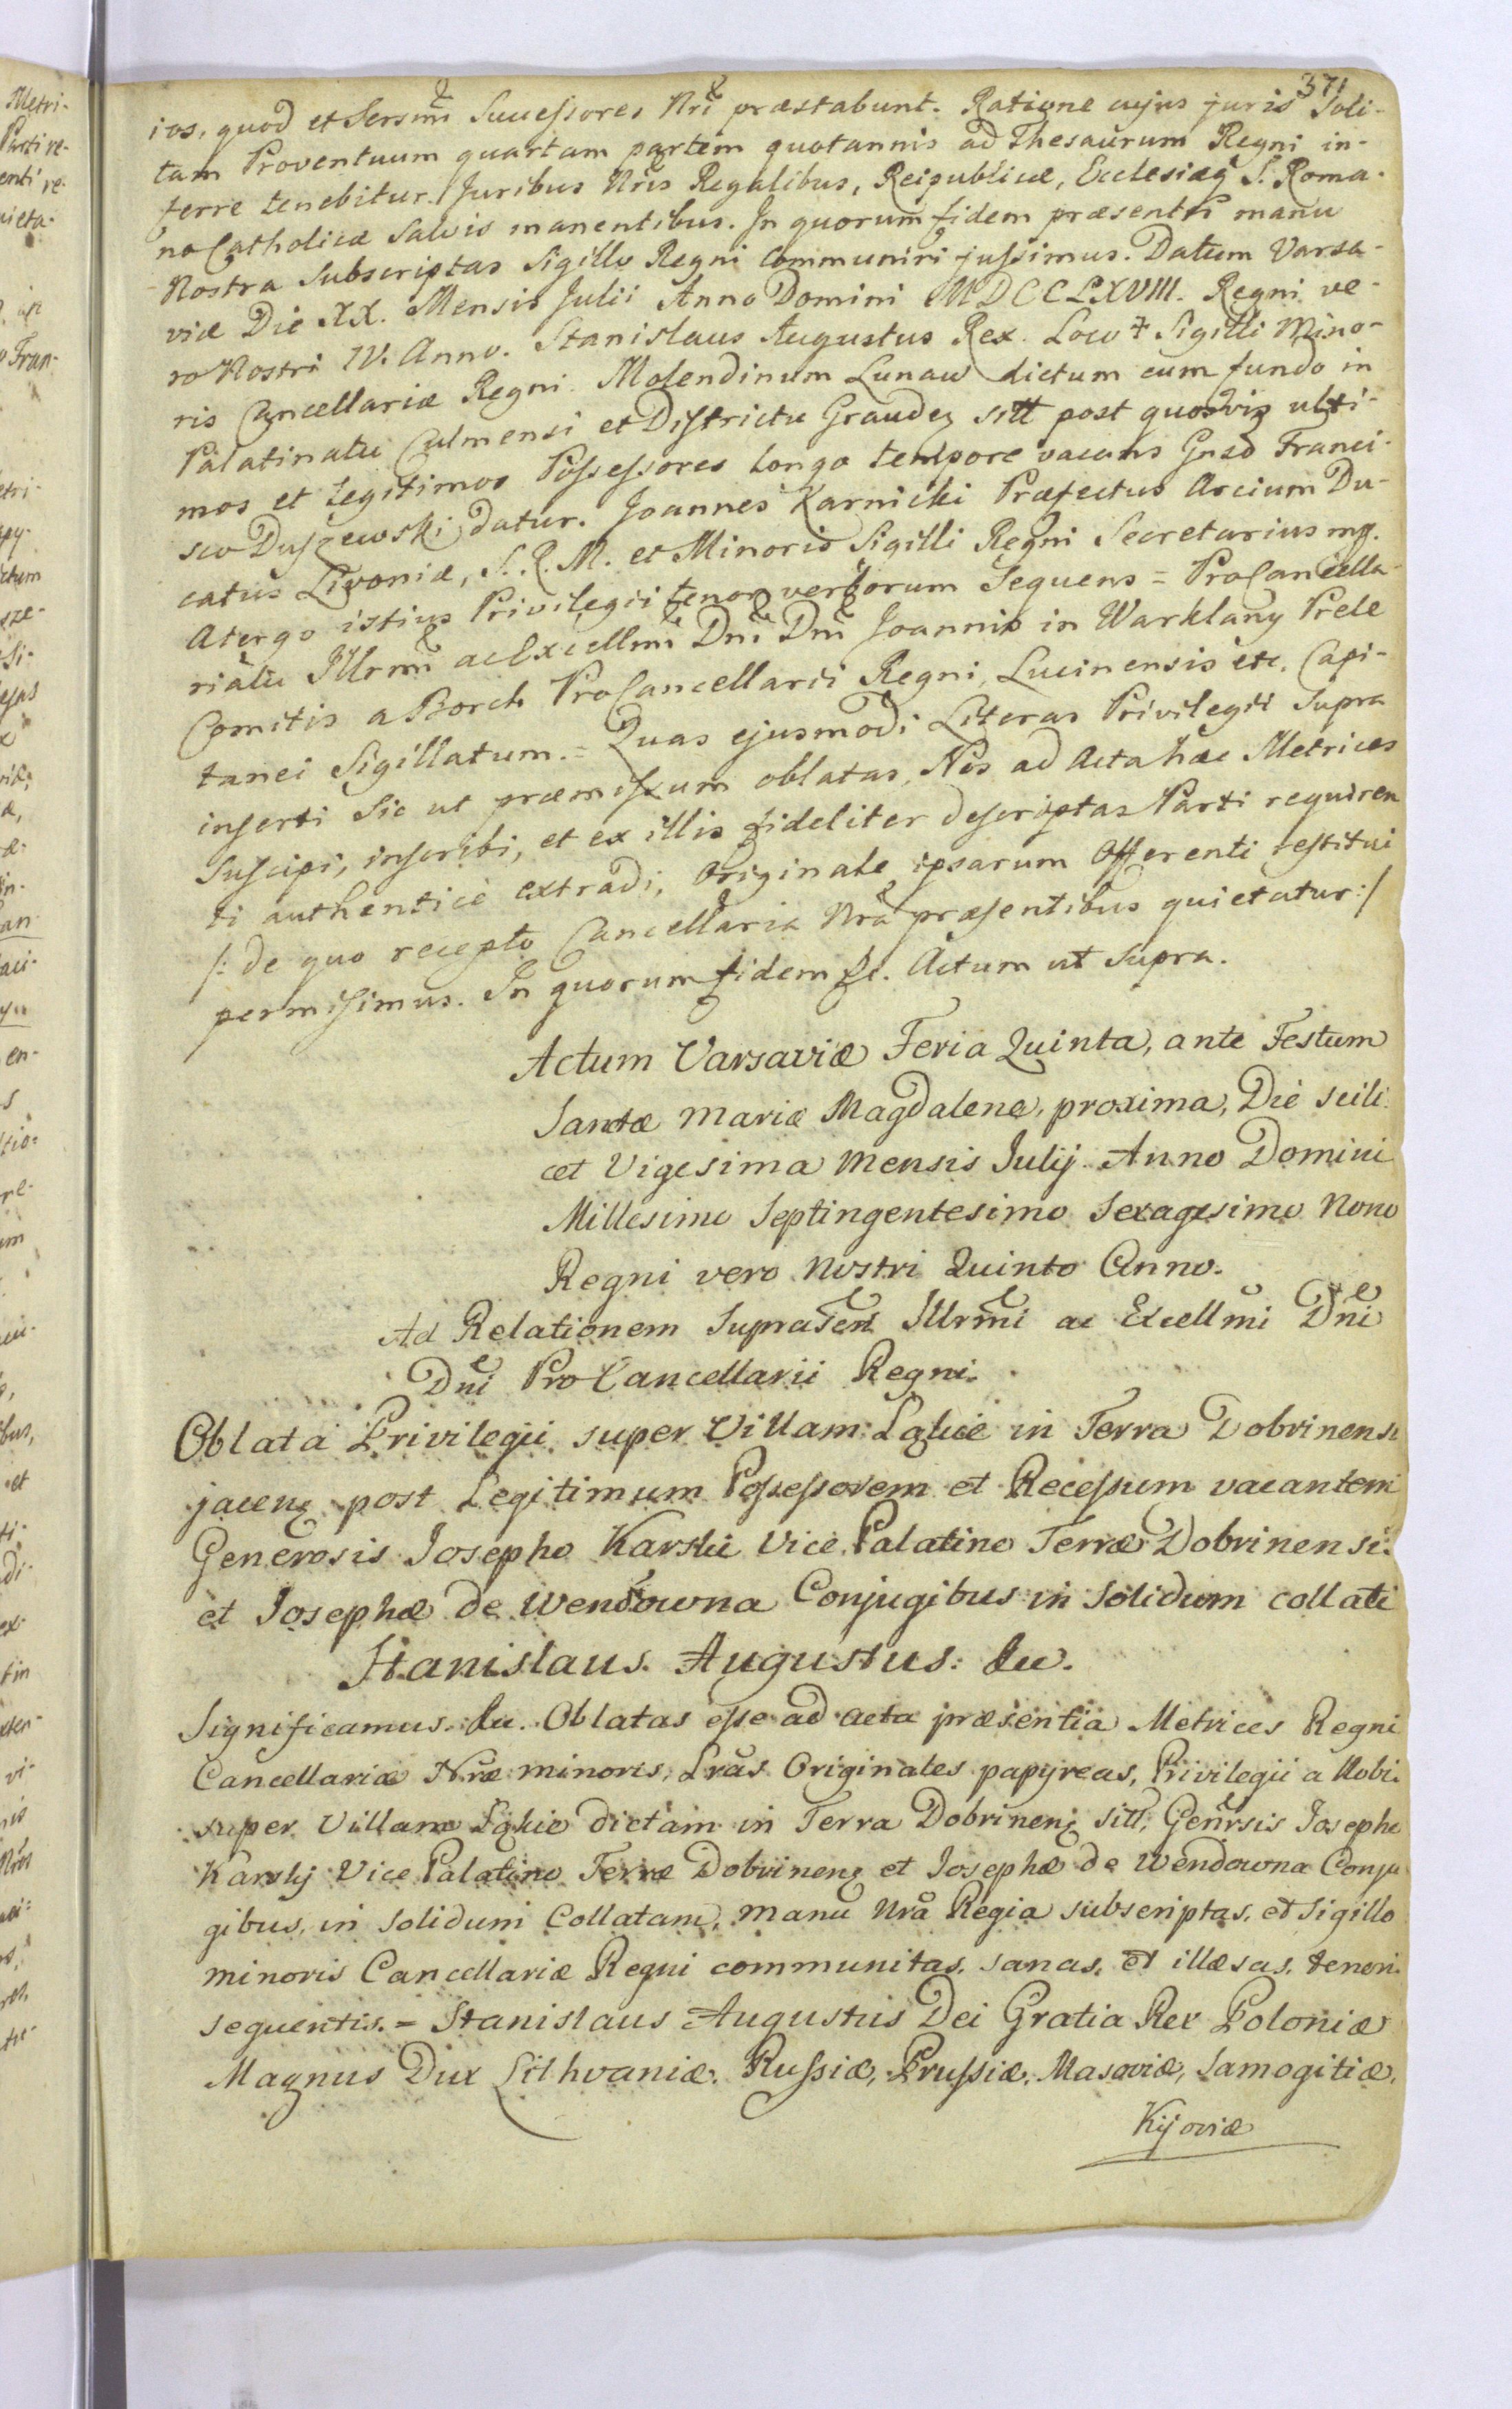 371
ios, quod et Sersmi Succeſsores Nri præstabunt. Ratione cujus juris Soli-
tam Proventuum quartam partem quotannis ad Thesaurum Regni in-
ferre tenebitur. Juribus Nris Regalibus, Reipublicæ, Ecclesiæq S. Roma-
no Catholicæ Salvis manentibus. In quorum fidem præsentes manu
Nostra Subscriptas Sigillo Regni Communiri juſsimus. Datum Varsa-
viæ Die XX. Mensis Julii Anno Domini MDCCLXVIII. Regni ve-
ro Nostri IV. Anno. Stanislaus Augustus Rex. Loco ‡ Sigilli Mino-
ris Cancellariæ Regni. Molendinum Lunaw dictum cum fundo in
Palatinatu Culmensi et Diſtrictu Graudez sitt post quosvis ulti-
mos et legitimos Poſseſsores longo tempore vacans Gnso Franci-
sco Duſzewski datur. Joannes Karnicki Præfectus Arcium Du-
catus Livoniæ, S. R. M. et Minoris Sigilli Regni Secretarius mp.
Atergo istius Privilegii tenor verborum Sequens = ProCancella-
riatu Illrmi ac Excellmi Dni Dni Joannis in Warklany Prele
Comitis a Borch ProCancellarii Regni, Lucinensis etc. Capi-
tanei Sigillatum. = Quas ejusmodi Literas Privilegii Supra
inſerti Sic ut præmiſsum oblatas, Nos ad Acta hæc Metrices
Suſcipi, inſcribi, et ex illis fideliter deſcriptas Parti requiren
ti authentice extradi, Originale ipsarum Offerenti reſtitui
/: de quo recepto Cancellaria Nra præſentibus quietatur :/
permiſimus. In quorum fidem &c. Actum ut supra.
Actum Varsaviæ Feria Quinta, ante Festum
Santæ Mariæ Magdalenæ, proxima, Die scili
cet Vigesima Mensis Julij Anno Domini
Millesimo Septingentesimo Sexagesimo Nono
Regni vero Nostri Quinto Anno.
Ad Relationem Suprascri Illrmi ac Excellmi Dni
Dni ProCancellarii Regni.
Oblata Privilegii super Villam Ląkie in Terra Dobrinensi
jacenz post Legitimum Poſseſsorem et Receſsum vacantem
Generosis Josepho Karski Vice Palatino Terræ Dobrinensi:
et Josephæ de Wendowna Conjugibus in Solidum collati
Stanislaus. Augustus: &c.
Significamus. &c. Oblatas eſse ad acta præsentia Metrices Regni
Cancellariæ Nræ minoris, Lras Originales papyreas, Privilegii a Nobi.
super Villam Ląkie dictam in Terra Dobrinenz sitt, Genrsis Josepho
Karskj Vice Palatino Terræ Dobrinenz et Josephæ de Wendowna Conju
gibus, in solidum Collatam, manu Nra Regia subscriptas, et Sigillo
minoris Cancellariæ Regni communitas, sanas, et illæsas, tenori.
sequentis. = Stanislaus Augustus Dei Gratia Rex Poloniæ
Magnus Dux Lithvaniæ, Ruſsiæ, Pruſsiæ, Masoviæ, Samogitiæ,
Kijoviæ